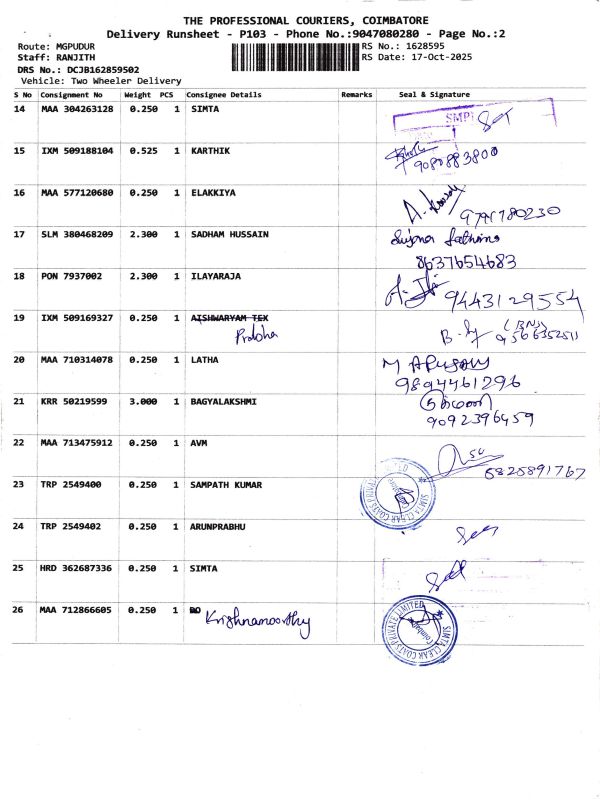 THE PROFESSIONAL COURIERS, COIMBATORE
Delivery Runsheet - P103 - Phone No.:9047080280 - Page No.:2
Route: MGPUDUR
RS No.: 1628595
Staff: RANJITH
RS Date: 17-Oct-2025
DRS No.: DCJB162859502
Vehicle: Two Wheeler Delivery
S No Consignment No Weight PCS Consignee Details Remarks Seal & Signature
14 MAA 304263128 0.250 1 SIMTA
15 IXM 509188104 0.525 1 KARTHIK
9080883800
16 MAA 577120680 0.250 1 ELAKKIYA
9791780230
17 SLM 380468209 2.300 1 SADHAM HUSSAIN
8637654683
18 PON 7937002 2.300 1 ILAYARAJA
9443129554
19 IXM 509169327 0.250 1 AISHWARYAM TEX
Prabha
20 MAA 710314078 0.250 1 LATHA
9894461296
21 KRR 50219599 3.000 1 BAGYALAKSHMI
9092396459
22 MAA 713475912 0.250 1 AVM
23 TRP 2549400 0.250 1 SAMPATH KUMAR
SIMTA CLEAR COATS PRIVATE LIMITED
24 TRP 2549402 0.250 1 ARUNPRABHU
25 HRD 362687336 0.250 1 SIMTA
26 MAA 712866605 0.250 1 Krishnamoorthy
SIMTA CLEAR COATS PRIVATE LIMITED
Coimbatore